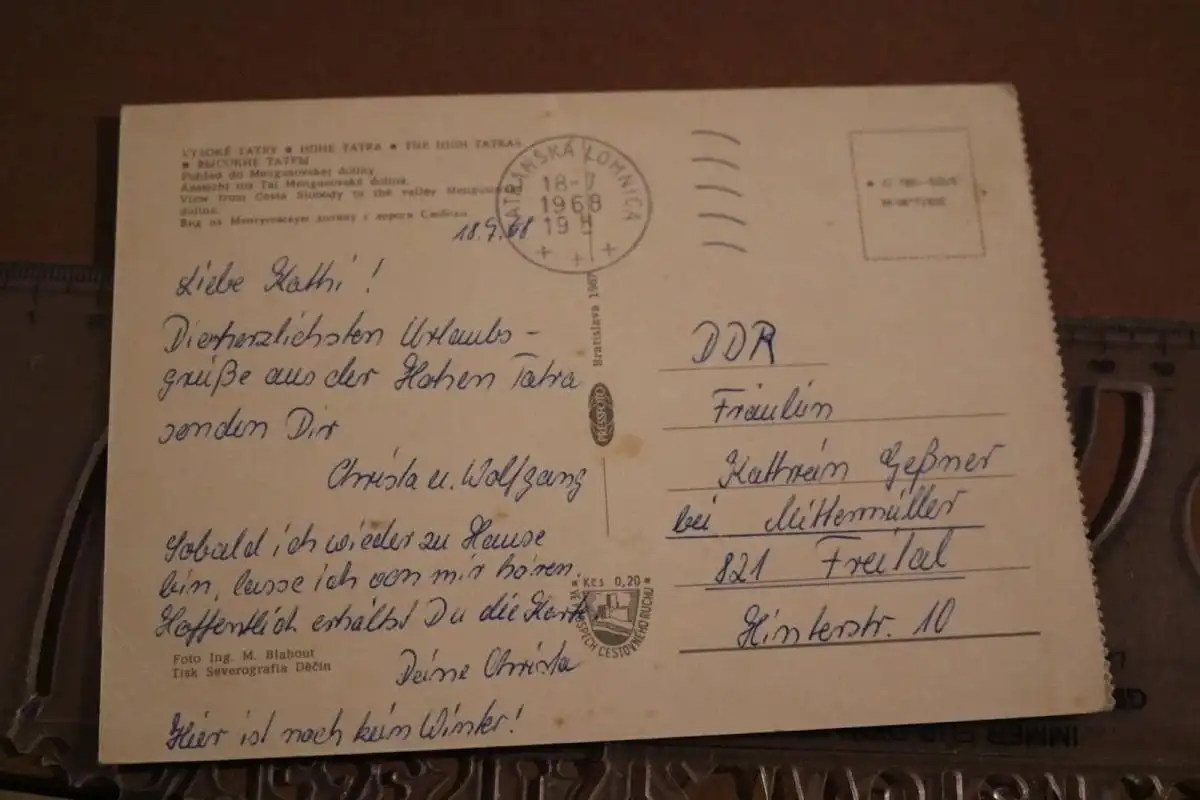 VYSOKÉ TATRY ● HOHE TATRA ● THE HIGH TATRAS
● ВЫСОКИЕ ТАТРЫ
Pohľad do Mengusovskej doliny
Aussicht ins Tal Mengusovská dolina.
View from Cesta Slobody to the valley Mengusovská
dolina.
Вид на Менгусовскую долину с дороги Свободы
18.9.68
TATRANSKÁ LOMNICA
1968
Liebe Kathi!
Die herzlichsten Urlaubs-
grüße aus der Hohen Tatra
senden Dir
Christa u. Wolfgang
Sobald ich wieder zu Hause
bin, lasse ich von mir hören.
Hoffentlich erhältst Du die Karte
Deine Christa
Hier ist noch kein Winter!
Foto Ing. M. Blahout
Tisk Severografia Děčín
Bratislava 1967
PRESSFOTO
Kčs 0,20
VE PROSPĚCH CESTOVNÉHO RUCHU
DDR
Fräulein
Kathrein Geßner
bei Mittenmüller
821 Freital
Hinterstr. 10